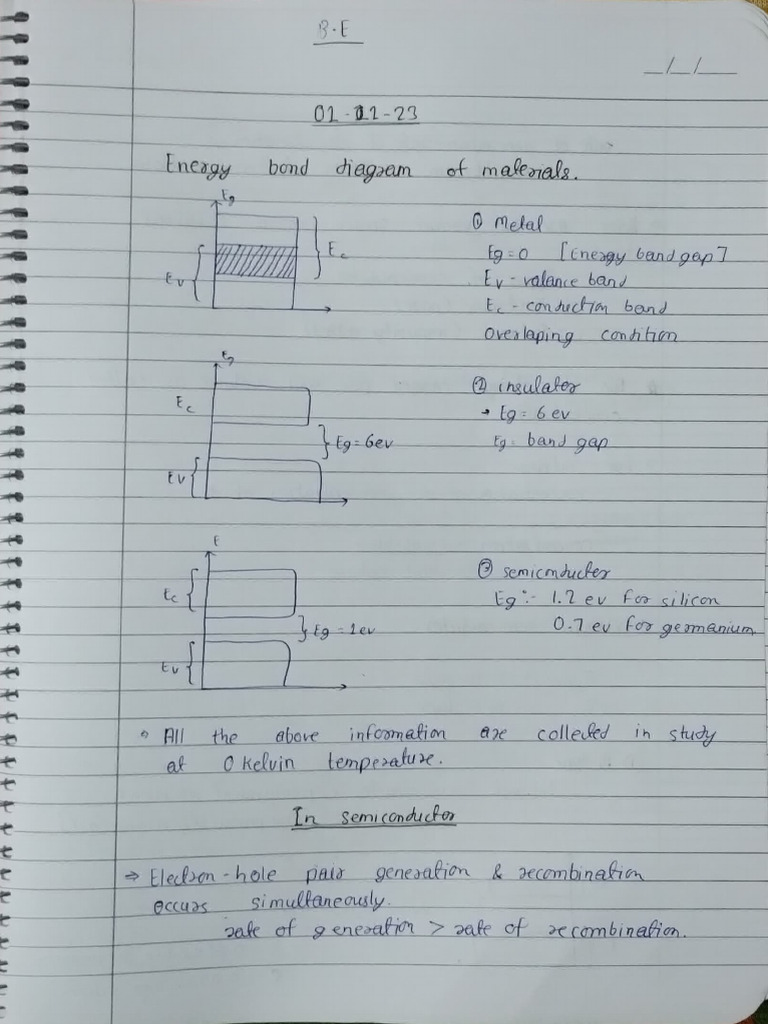 B.E
_/_/__
01-11-23
Energy bond diagram of materials.
Eg
Ev
Ec
① Metal
Eg=0 [Energy band gap]
Ev - valance band
Ec - conduction band
overlaping condition
Eg
Ec
Eg=6ev
Ev
② insulator
→ Eg = 6 ev
Eg = band gap
E
Ec
Eg = 1ev
Ev
③ semiconductor
Eg :- 1.2 ev for silicon
0.7 ev for germanium
• All the above information are collected in study
at 0 Kelvin temperature.
In semiconductor
⇒ Electron-hole pair generation & recombination
occurs simultaneously.
rate of generation > rate of recombination.